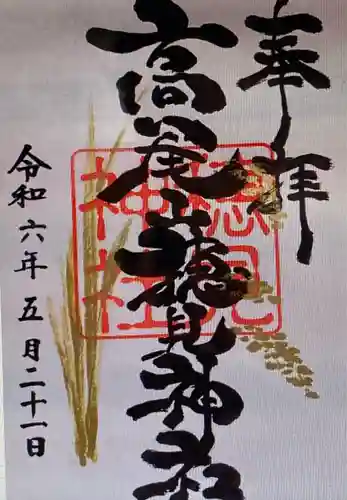 奉拝
高尾山穂見神社
穂見神社
令和六年五月二十一日